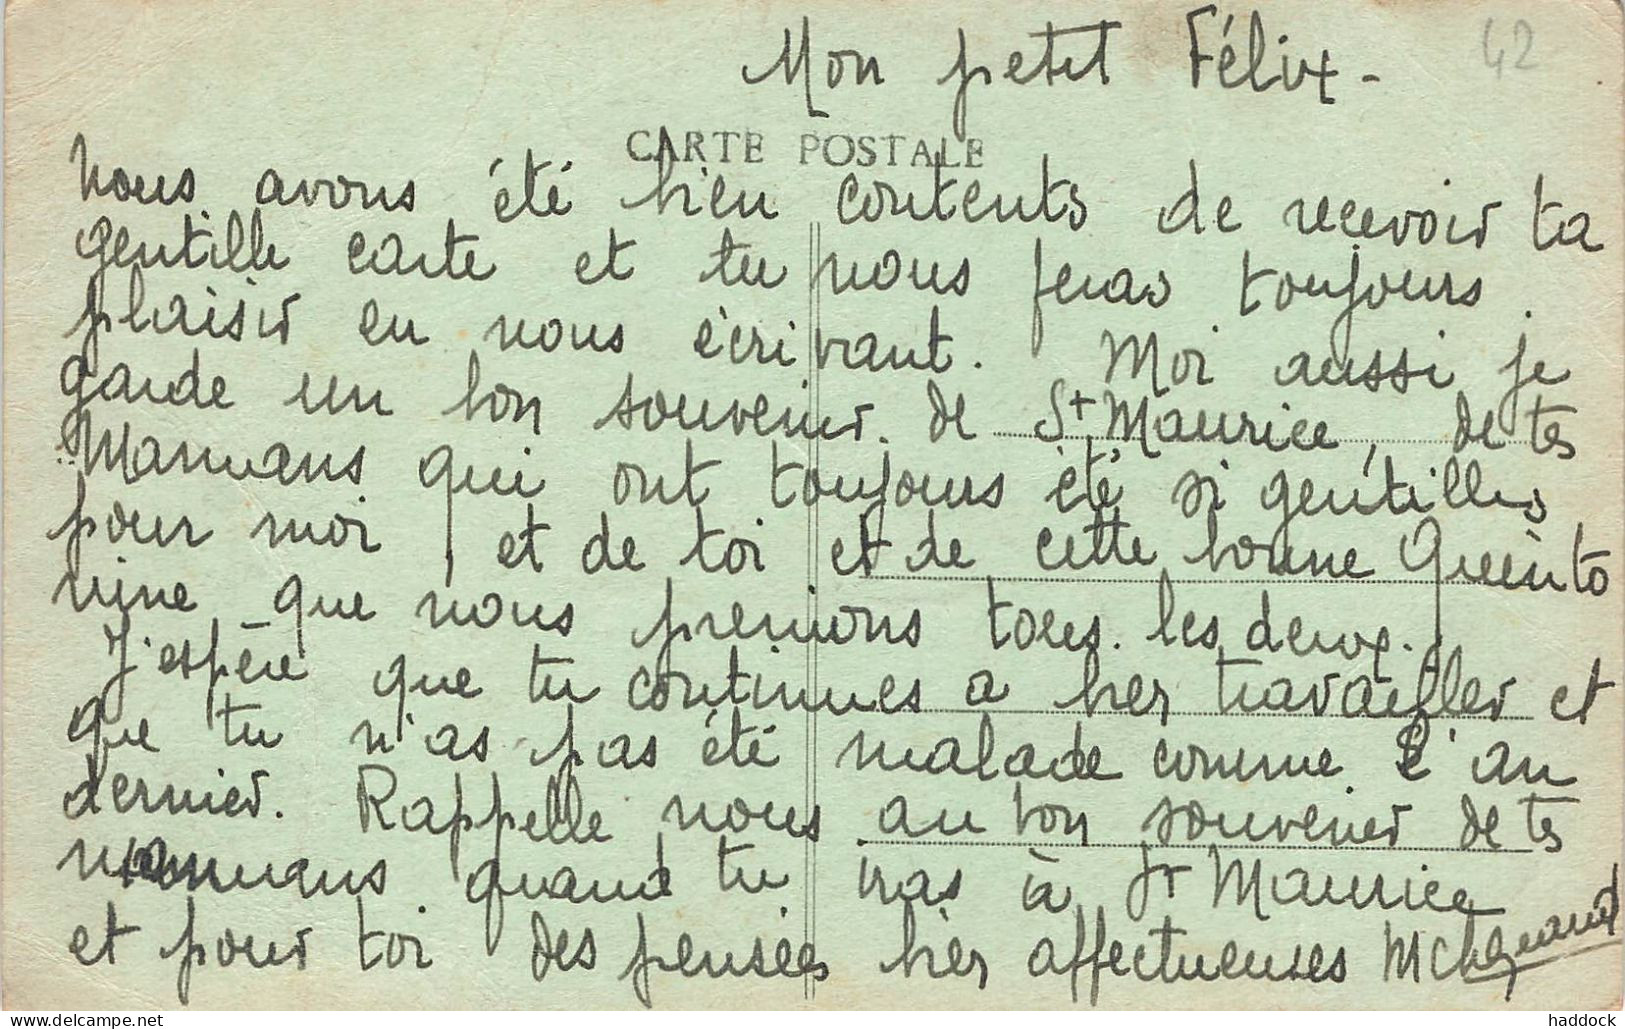 Mon petit Félix -
42
CARTE POSTALE
Nous avons été bien contents de recevoir ta
gentille carte et tu nous feras toujours
plaisir en nous écrivant. Moi aussi je
garde un bon souvenir de St Maurice, de tes
Mamans qui ont toujours été si gentilles
pour moi, et de toi et de cette bonne Quinto
nine que nous prenions tous les deux.
J'espère que tu continues a bien travailler et
que tu n'as pas été malade comme l'an
dernier. Rappelle nous au bon souvenir de tes
mamans quand tu iras à St Maurice
et pour toi des pensées bien affectueuses
haddock